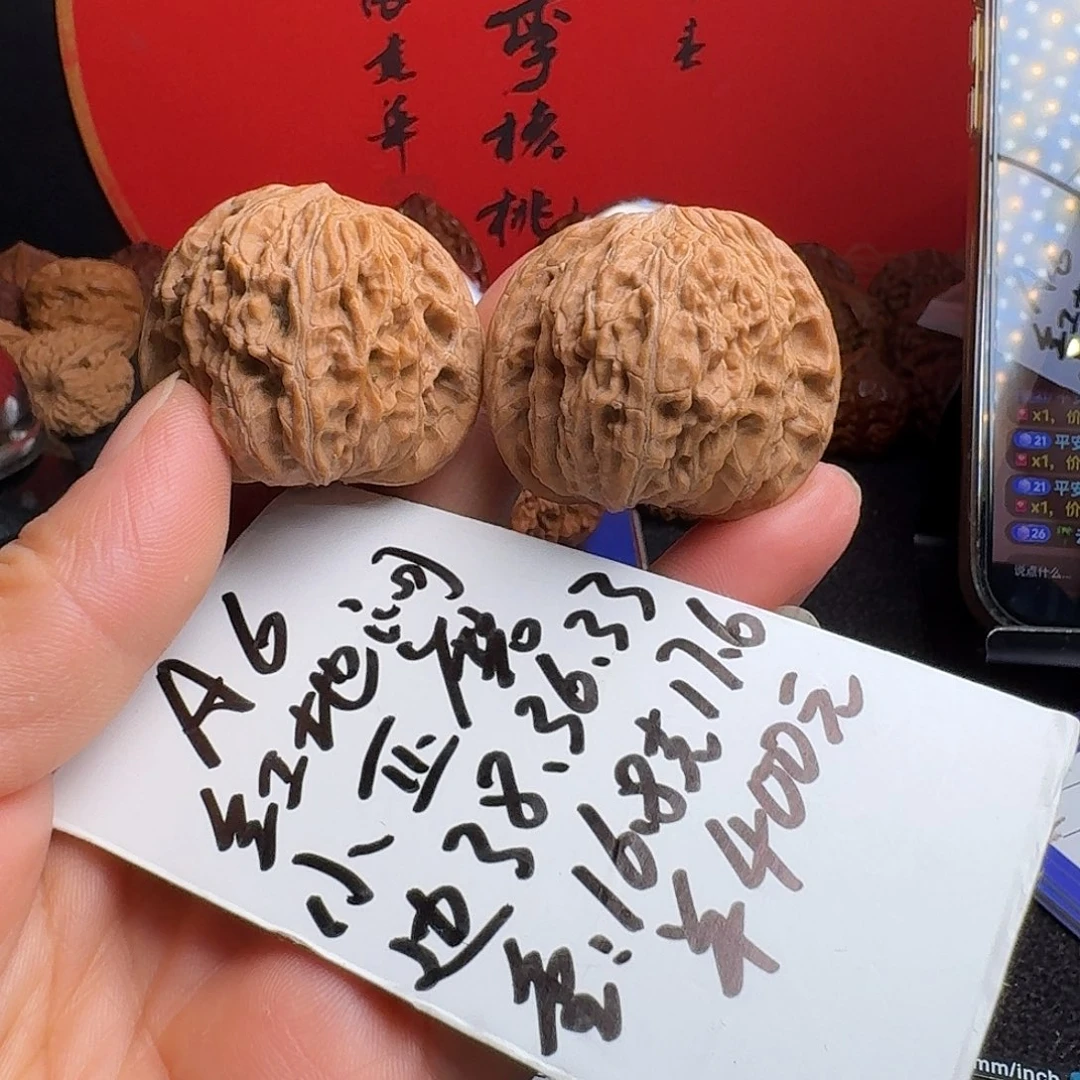 核
桃
A6
红地河
小亚
边38.36.33
重:16.8克17.6
400元
x1，价
21 平安
x1，价
21 平安
x1，价
26
说点什么...
mm/inch